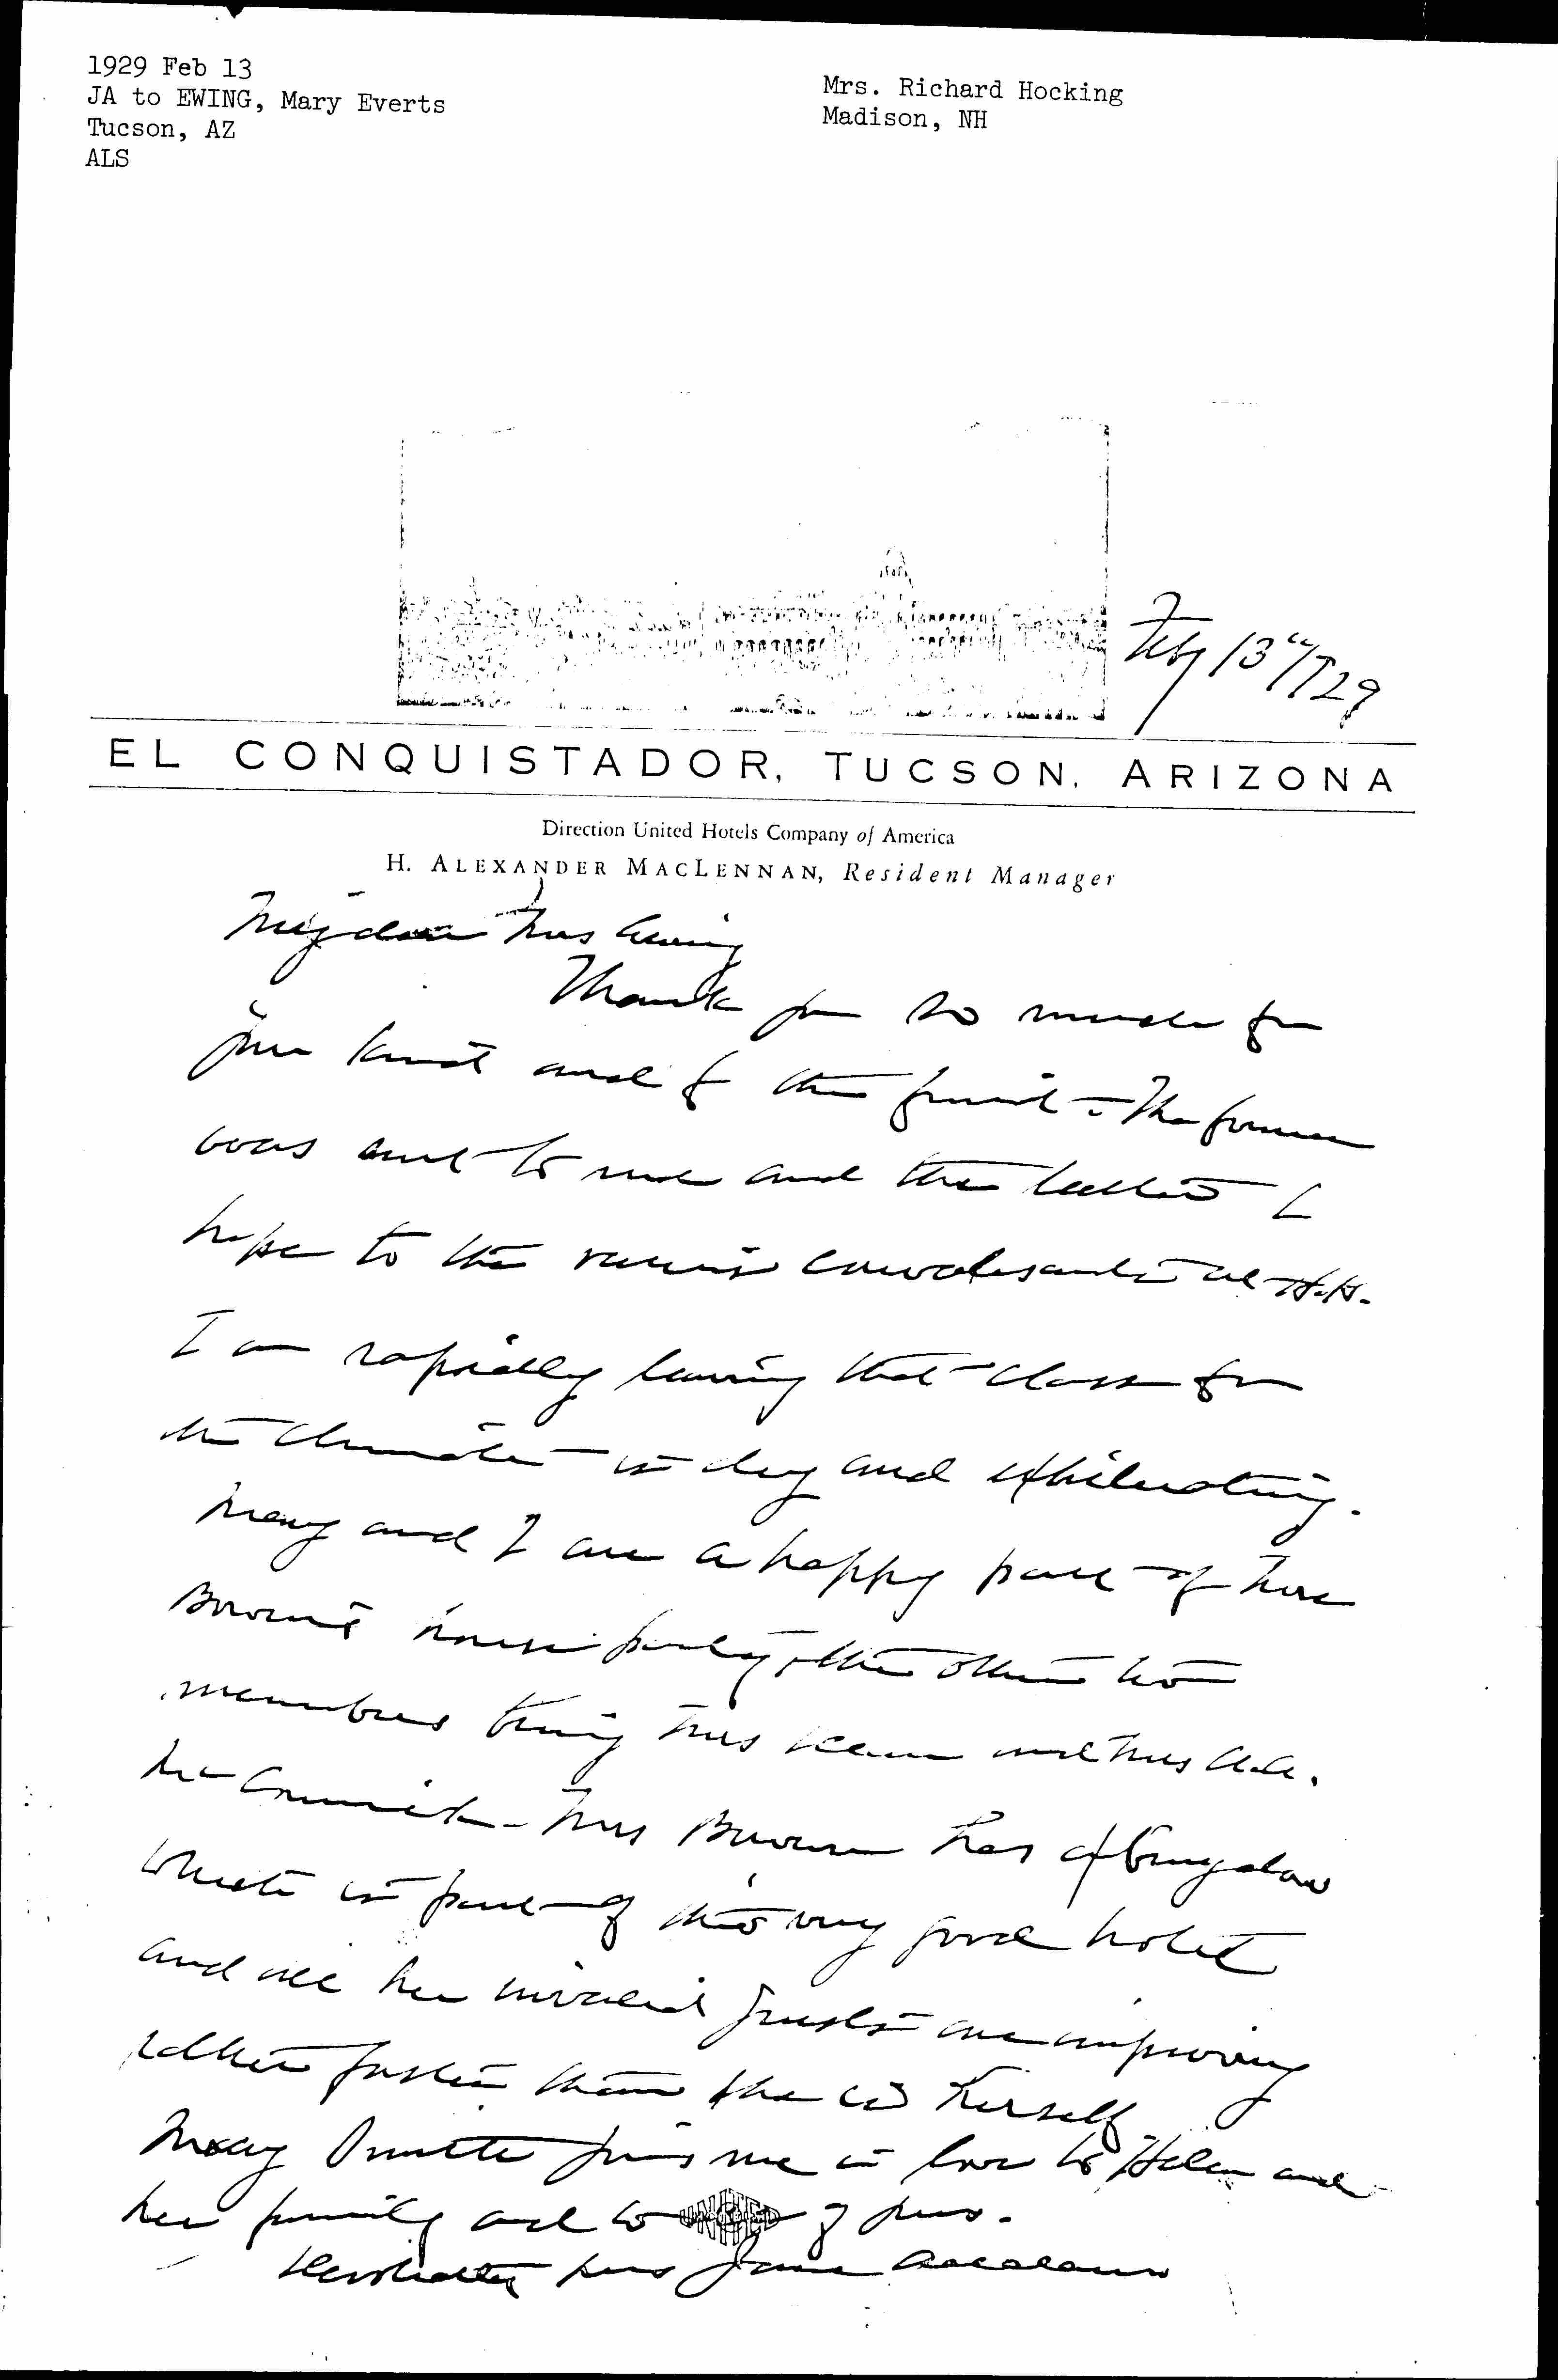 1929 Feb 13
JA to EWING, Mary Everts
Tucson, AZ
ALS
Mrs. Richard Hocking
Madison, NH
Feby 13" 1929
EL CONQUISTADOR, TUCSON, ARIZONA
Direction United Hotels Company of America
H. ALEXANDER MACLENNAN, Resident Manager
My dear Mrs Ewing
Thank you so much for
your and for the fruit - The former
was sent to me and the latter I
hope to the various convalescents at H.H.
I am rapidly leaving that class for
the climate is dry and exhilarating.
Mary and I are a happy part of Mrs
Bowen's house party, the other two
members being Mrs and Mrs A.A.
McCormick - Mrs Bowen has a bungalow
which is part of this very good hotel
and all her invalid guests are improving
rather faster than she is herself
Mary Smith joins me in love to Helen and
her family and to of yours.
UNITED
Devotedly yours Jane Addams